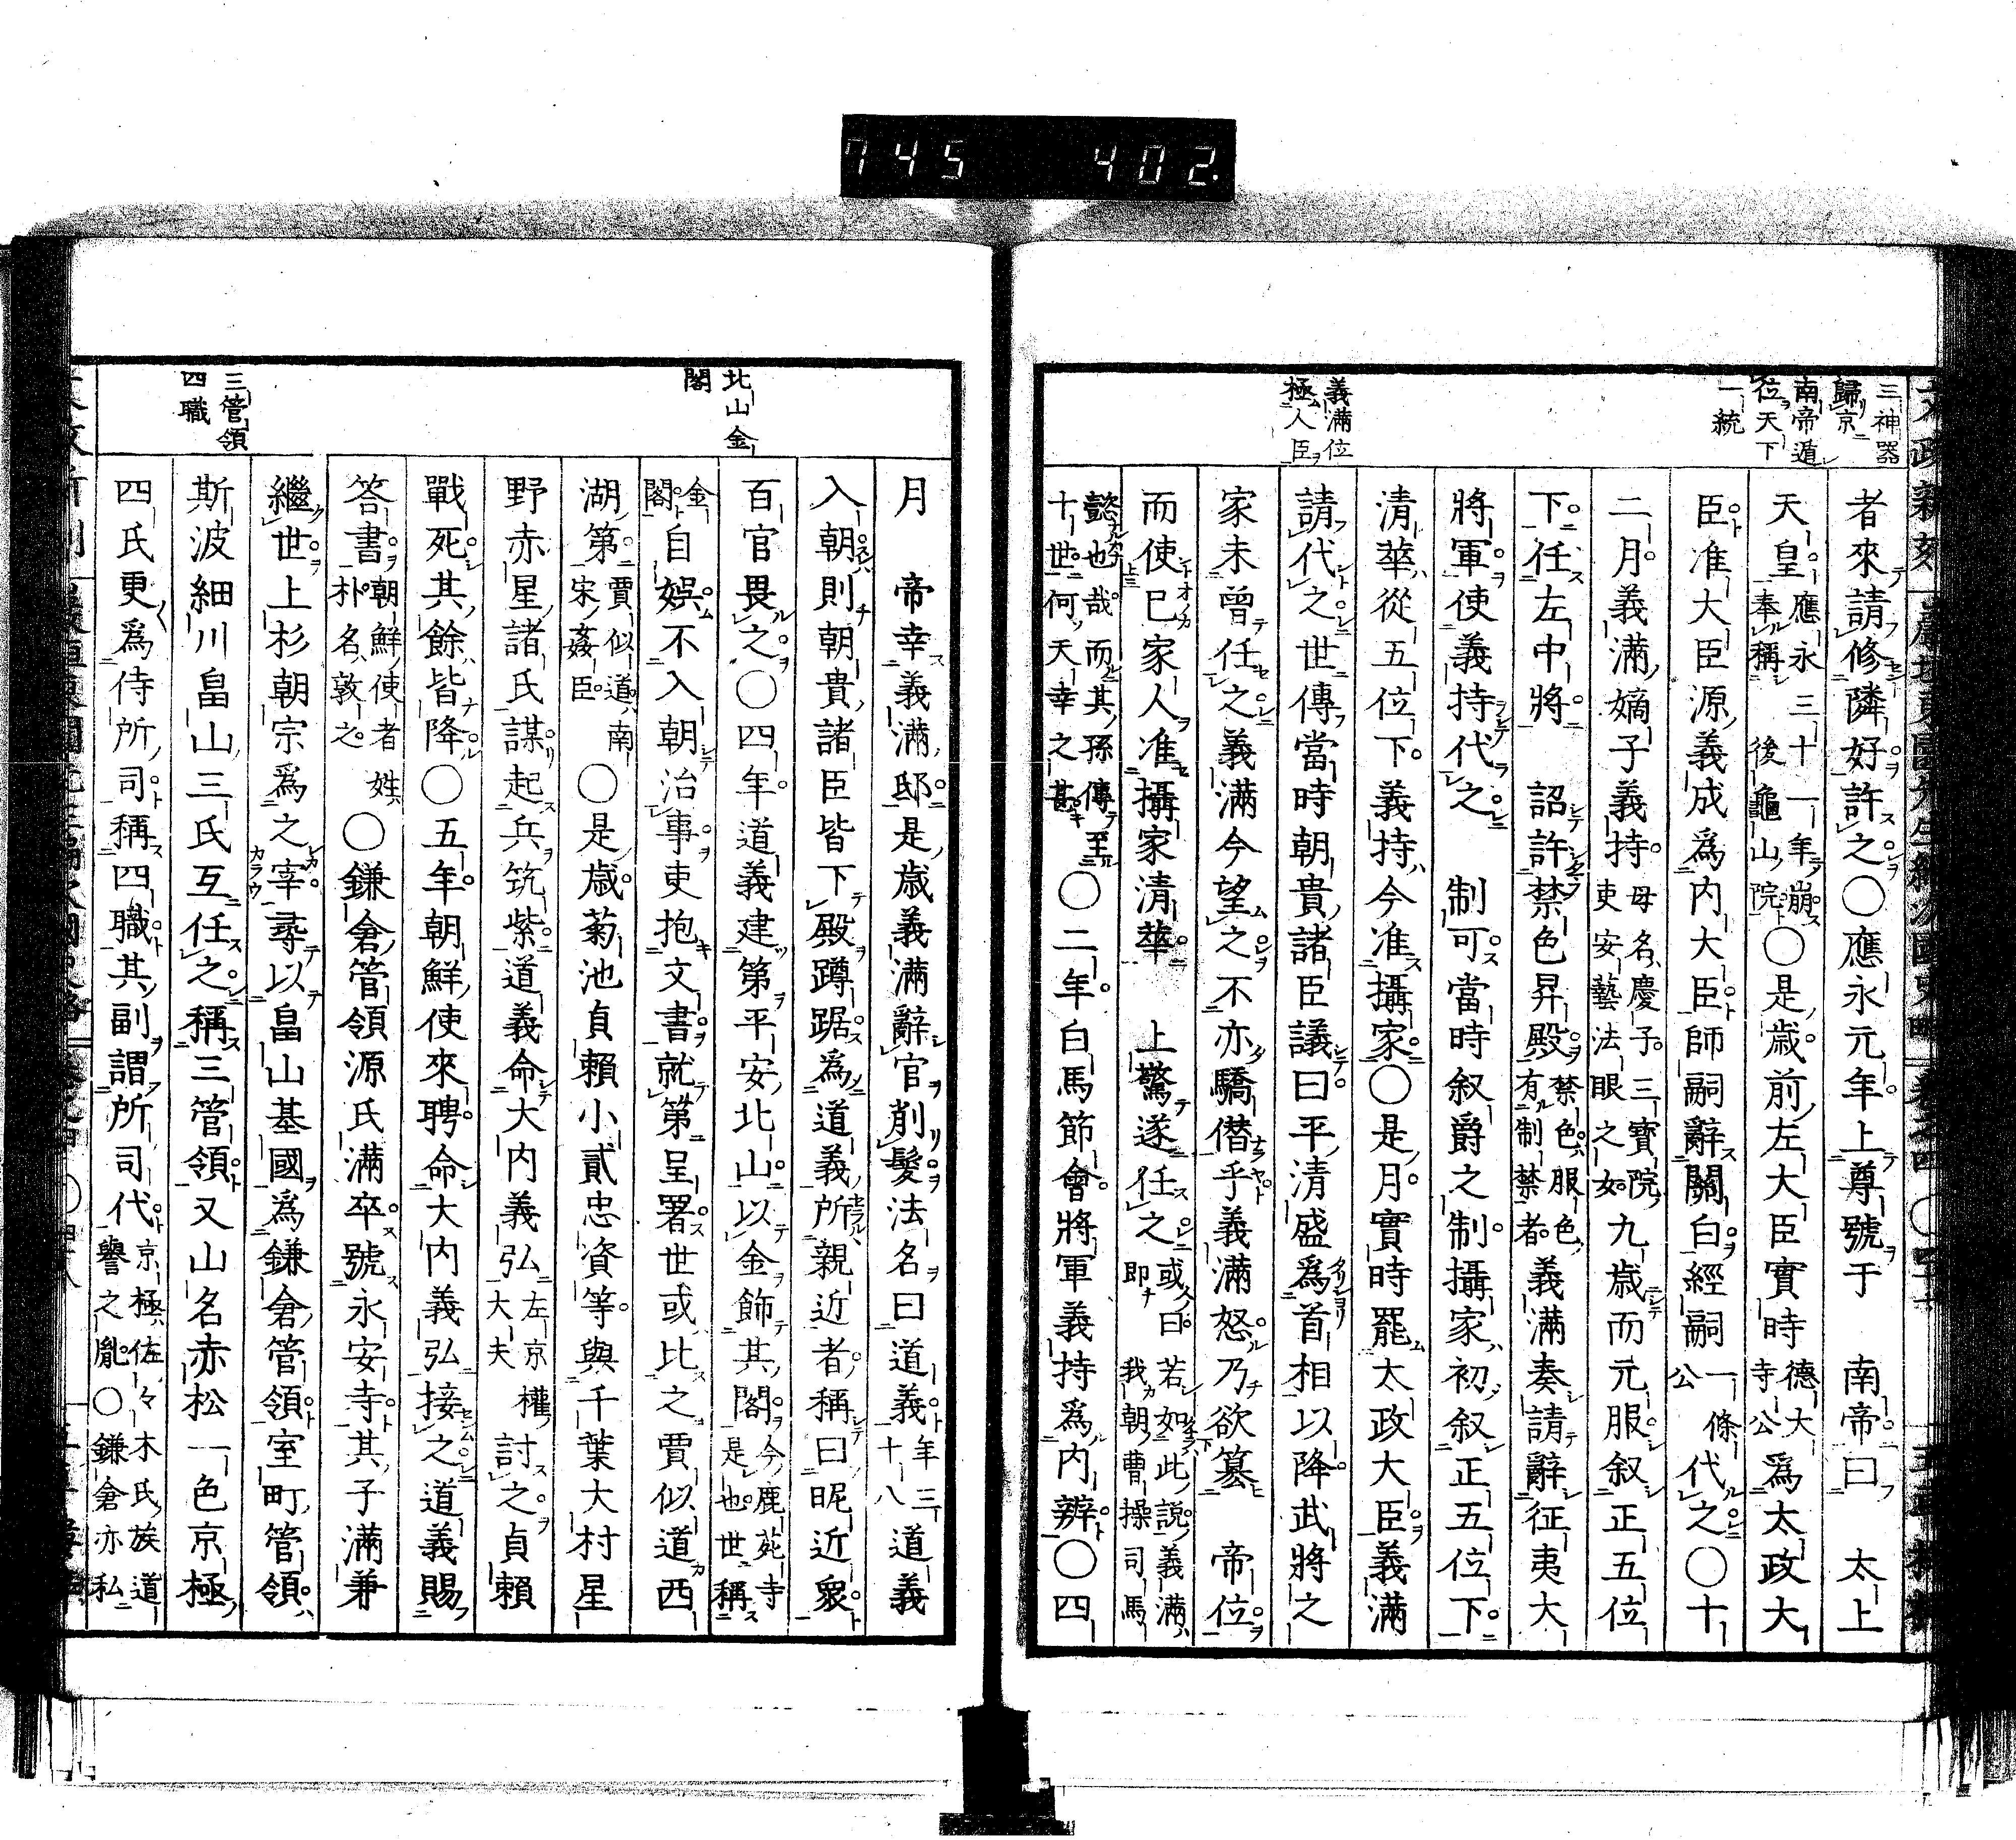 745 402.
三神器
歸京
南帝遁
位天下
一統
義滿位
極人臣
者來請修隣好許之〇應永元年上尊號于 南帝曰 太上
天皇應永三十一年崩奉稱後龜山院〇是歲前左大臣實時德大寺公爲太政大
臣准大臣源義成爲内大臣師嗣辭關白經嗣一條公代之〇十
二月義滿嫡子義持母名慶子三寶院吏安藝法眼之女九歲而元服叙正五位
下任左中將 詔許禁色昇殿禁色服色有制禁者義滿奏請辭征夷大
將軍使義持代之 制可當時叙爵之制攝家初叙正五位下
清華從五位下義持今准攝家〇是月實時罷太政大臣義滿
請代之世傳當時朝貴諸臣議曰平清盛爲首相以降武將之
家未曾任之義滿今望之不亦驕僣乎義滿怒乃欲簒 帝位
而使已家人准攝家清華 上驚遂任之或曰若如此說義滿即我朝曹操司馬
懿也哉而其孫傳王十世何天幸之甚〇二年白馬節會將軍義持爲内辨〇四
北山金
閣
三管領
四職
月 帝幸義滿邸是歲義滿辭官削髮法名曰道義年三十八道義
入朝則朝貴諸臣皆下殿蹲踞爲道義所親近者稱曰昵近衆
百官畏之〇四年道義建第平安北山以金飾其閣今鹿苑寺是也世稱
金閣自娯不入朝治事吏抱文書就第呈署世或比之賈似道西
湖第賈似道南宋姦臣〇是歲菊池貞賴小貳忠資等與千葉大村星
野赤星諸氏謀起兵筑紫道義命大内義弘左京權大夫討之貞賴
戰死其餘皆降〇五年朝鮮使來聘命大内義弘接之道義賜
答書朝鮮使者姓朴名敦之〇鎌倉管領源氏滿卒號永安寺其子滿兼
繼世上杉朝宗爲之宰尋以畠山基國爲鎌倉管領室町管領
斯波細川畠山三氏互任之稱三管領又山名赤松一色京極
四氏更爲侍所司稱四職其副謂所司代京極佐々木氏族道譽之胤〇鎌倉亦私